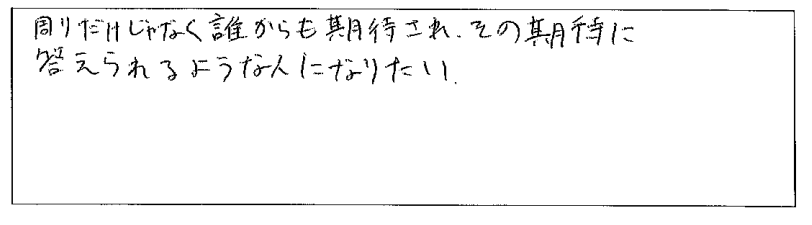 周りだけじゃなく誰からも期待され.その期待に
答えられるような人になりたい.